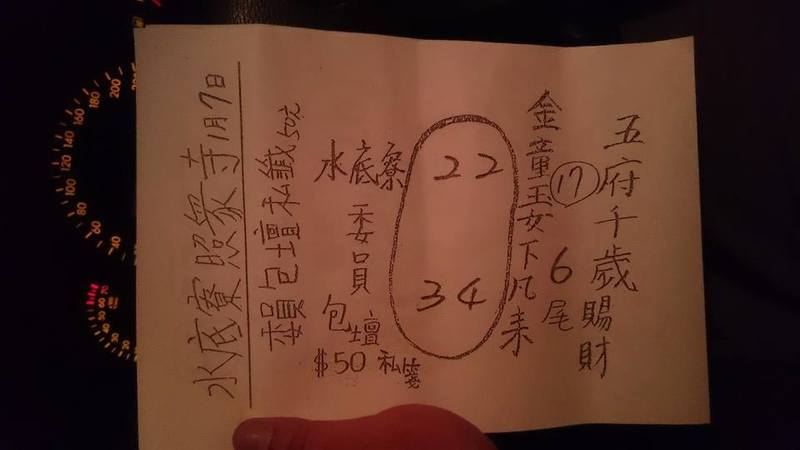 五府千歲賜財
金童玉女下凡来
17
6尾
22
34
水底寮
委員
包壇
$50 私箋
委員包壇私籤50元
水底寮照衆寺1月7日
200
180
160
140
120
100
80
60
40